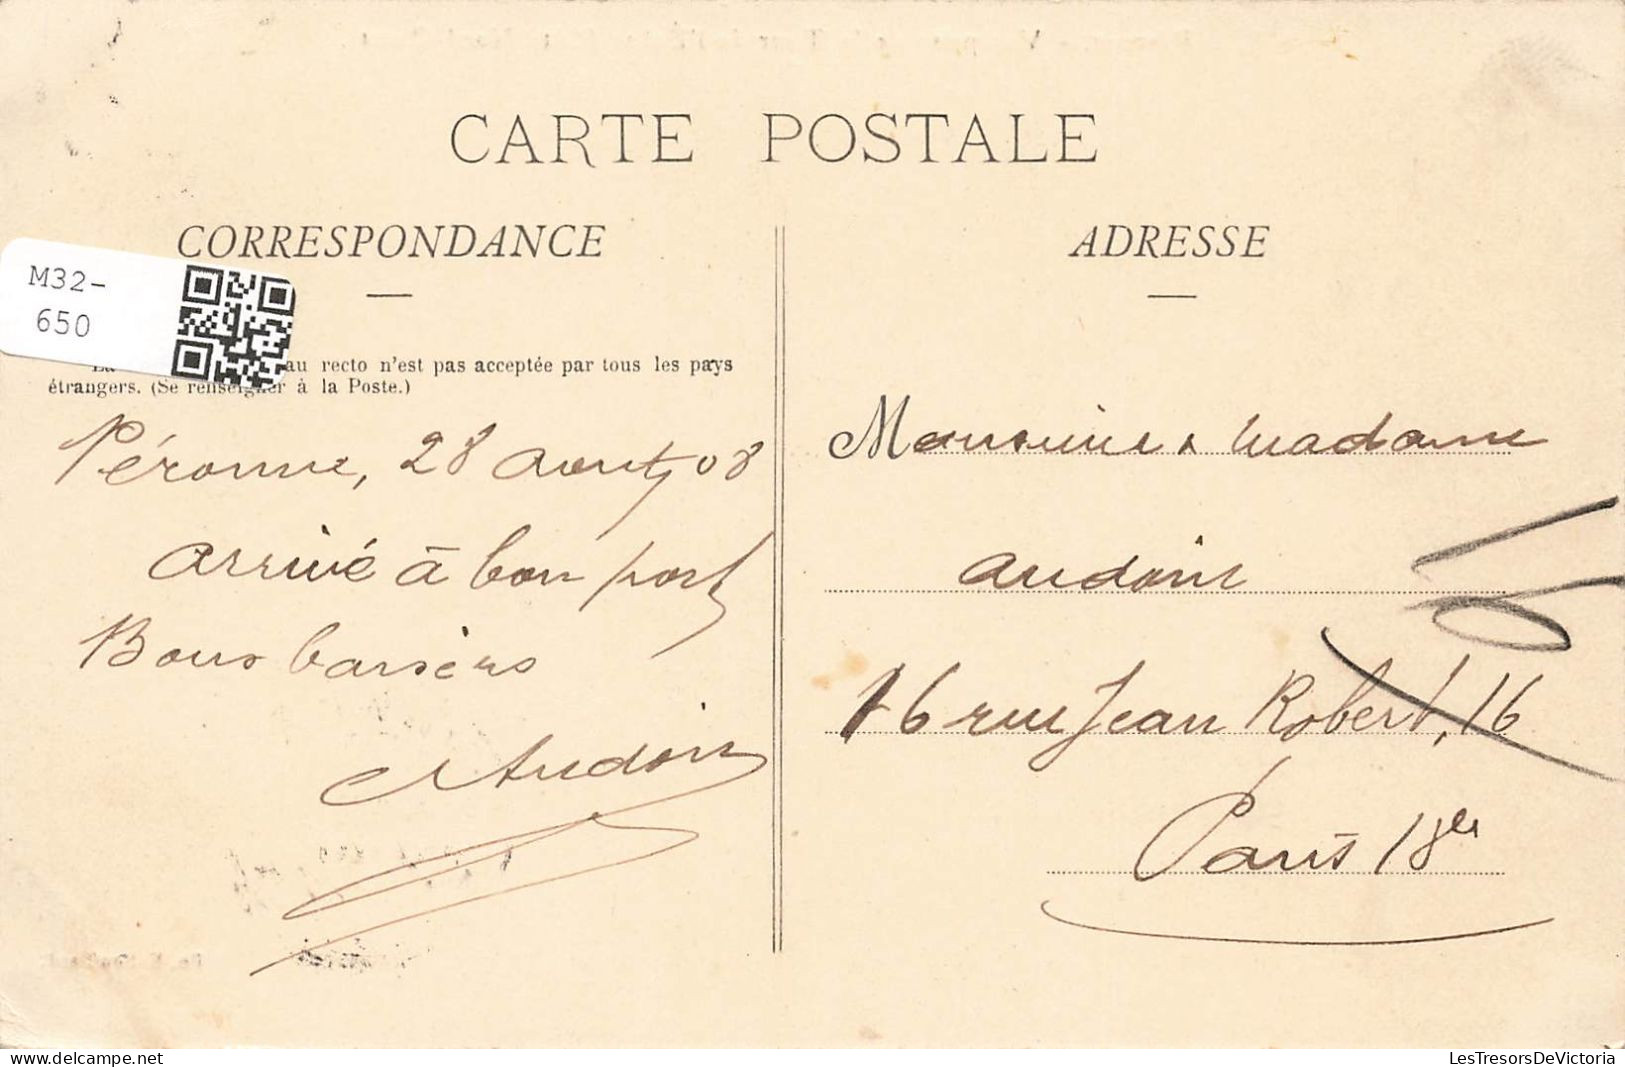 CARTE POSTALE
CORRESPONDANCE
M32-
650
La au recto n'est pas acceptée par tous les pays
étrangers. (Se renseigner à la Poste.)
Péronne, 28 Aout 08
Arrivé à bon port
Bons baisers
Audoin
ADRESSE
Monsieur & Madame
Audoin
16 rue Jean Robert, 16
Paris 18e
LesTresorsDeVictoria